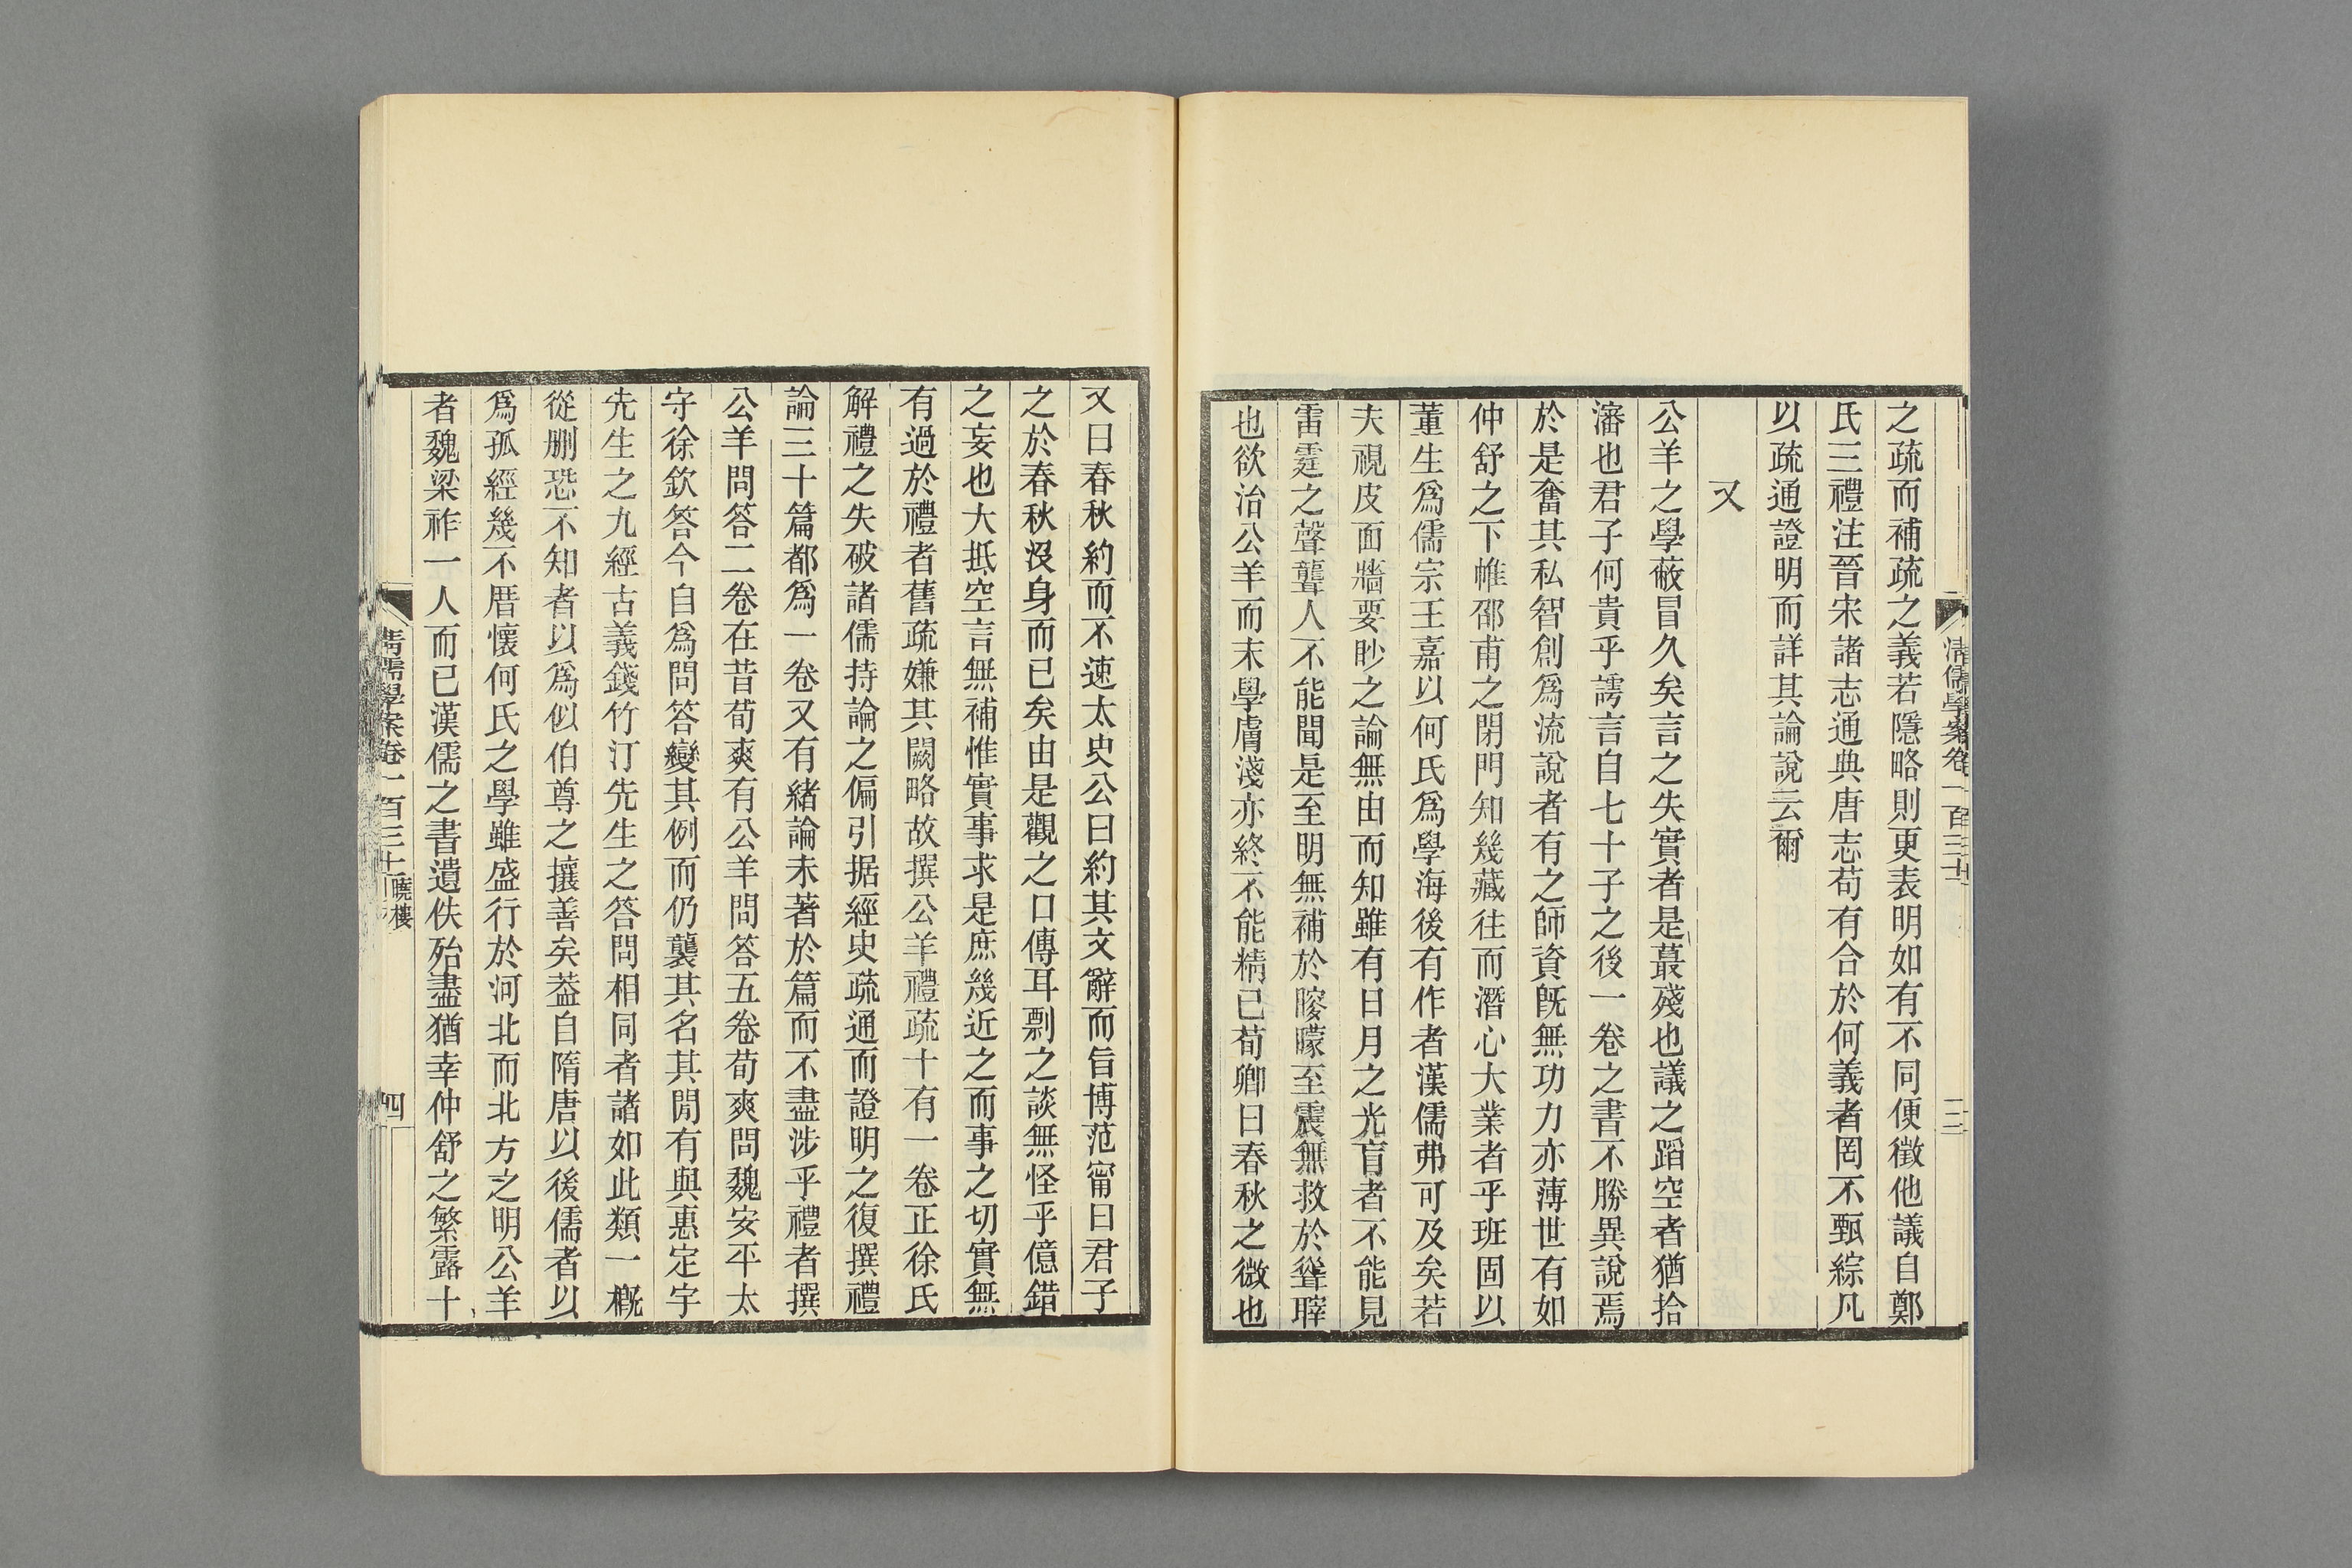 之疏而補疏之義若隱略則更表明如有不同便徵他議自鄭
氏三禮注晉宋諸志通典唐志苟有合於何義者罔不甄綜凡
以疏通證明而詳其論說云爾
又
公羊之學蔽冒久矣言之失實者是蕞殘也議之蹈空者猶拾
瀋也君子何貴乎謣言自七十子之後一卷之書不勝異說焉
於是奮其私智創爲流說者有之師資既無功力亦薄世有如
仲舒之下帷邵甫之閉門知幾藏往而潛心大業者乎班固以
董生爲儒宗王嘉以何氏爲學海後有作者漢儒弗可及矣若
夫視皮面牆要眇之論無由而知雖有日月之光盲者不能見
雷霆之聲聾人不能聞是至明無補於矇至震無救於聳聹
也欲治公羊而末學膚淺亦終不能精已荀卿曰春秋之微也
清儒學案卷一百三十一
三
又曰春秋約而不速太史公曰約其文辭而旨博范甯曰君子
之於春秋沒身而已矣由是觀之口傳耳剽之談無怪乎億錯
之妄也大抵空言無補惟實事求是庶幾近之而事之切實無
有過於禮者舊疏嫌其闕略故撰公羊禮疏十有一卷正徐氏
解禮之失破諸儒持論之偏引据經史疏通而證明之復撰禮
論三十篇都爲一卷又有緒論未著於篇而不盡涉乎禮者撰
公羊問答二卷在昔荀爽有公羊問答五卷荀爽問魏安平太
守徐欽答今自爲問答變其例而仍襲其名其閒有與惠定宇
先生之九經古義錢竹汀先生之答問相同者諸如此類一概
從刪恐不知者以爲似伯尊之攘善矣葢自隋唐以後儒者以
爲孤經幾不厝懷何氏之學雖盛行於河北而北方之明公羊
者魏梁祚一人而已漢儒之書遺佚殆盡猶幸仲舒之繁露十
清儒學案卷一百三十一 曉樓
四